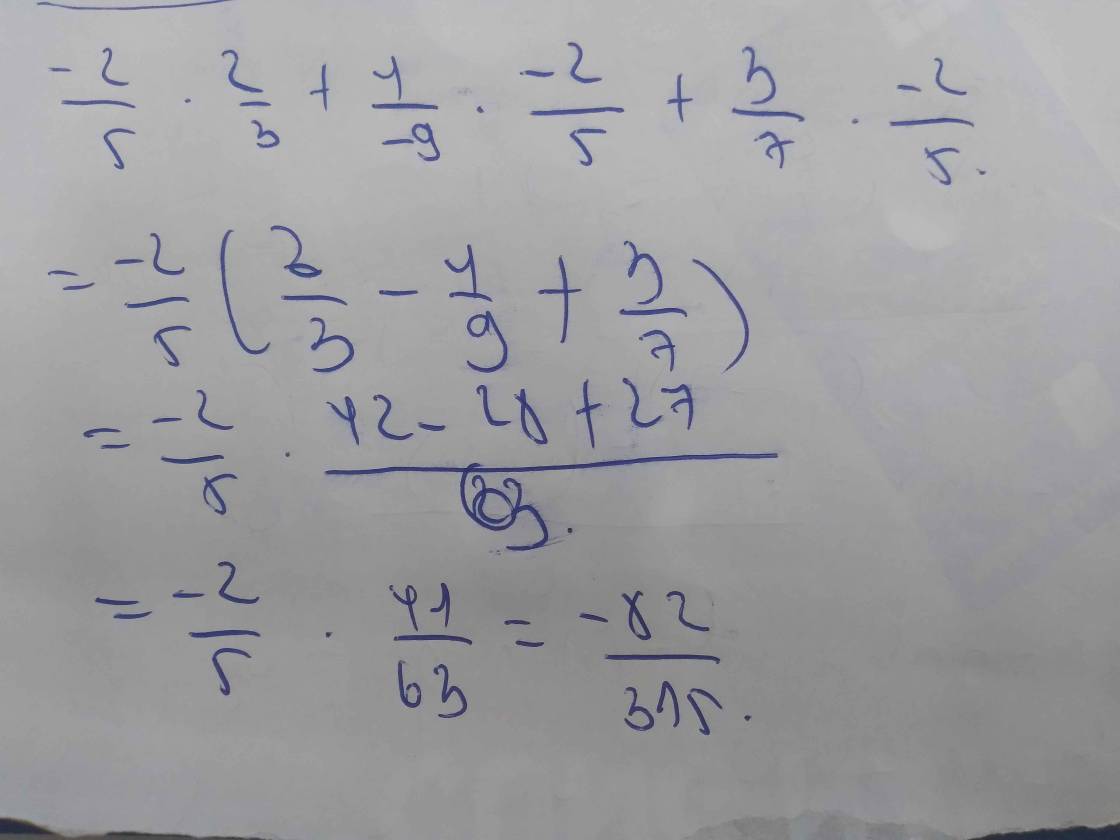 -2/5 . 2/3 + 4/-9 . -2/5 + 3/7 . -2/5.
= -2/5 ( 2/3 - 4/9 + 3/7 )
= -2/5 . 42 - 28 + 27 / 63.
= -2/5 . 41/63 = -82/315.